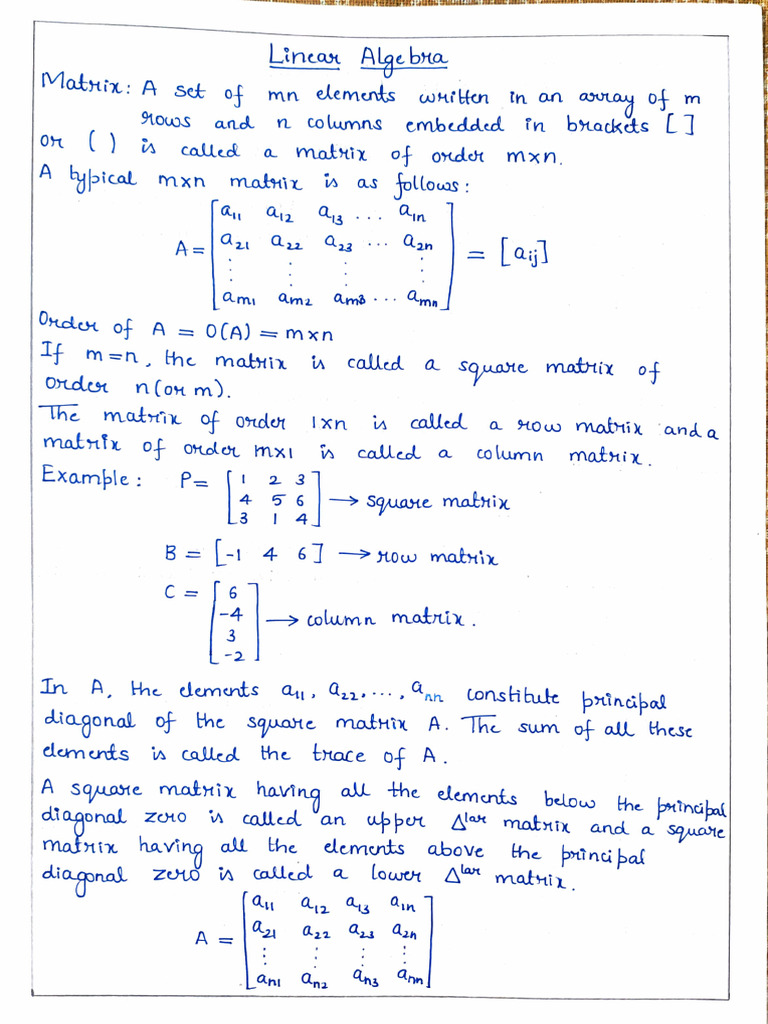 Linear Algebra
Matrix: A set of mn elements written in an array of m
rows and n columns embedded in brackets [ ]
or ( ) is called a matrix of order m×n.
A typical m×n matrix is as follows:
a₁₁ a₁₂ a₁₃ ... a₁ₙ
A = a₂₁ a₂₂ a₂₃ ... a₂ₙ = [aᵢⱼ]
⋮ ⋮ ⋮ ⋮
aₘ₁ aₘ₂ aₘ₃ ... aₘₙ
Order of A = O(A) = m×n
If m=n, the matrix is called a square matrix of
order n(or m).
The matrix of order 1×n is called a row matrix and a
matrix of order m×1 is called a column matrix.
Example: P= [1 2 3
4 5 6 → square matrix
3 1 4]
B = [-1 4 6] → row matrix
C = [6
-4 → column matrix.
3
-2]
In A, the elements a₁₁, a₂₂, ..., aₙₙ constitute principal
diagonal of the square matrix A. The sum of all these
elements is called the trace of A.
A square matrix having all the elements below the principal
diagonal zero is called an upper Δˡᵃʳ matrix and a square
matrix having all the elements above the principal
diagonal zero is called a lower Δˡᵃʳ matrix.
a₁₁ a₁₂ a₁₃ a₁ₙ
A = a₂₁ a₂₂ a₂₃ a₂ₙ
⋮ ⋮ ⋮ ⋮
aₙ₁ aₙ₂ aₙ₃ aₙₙ